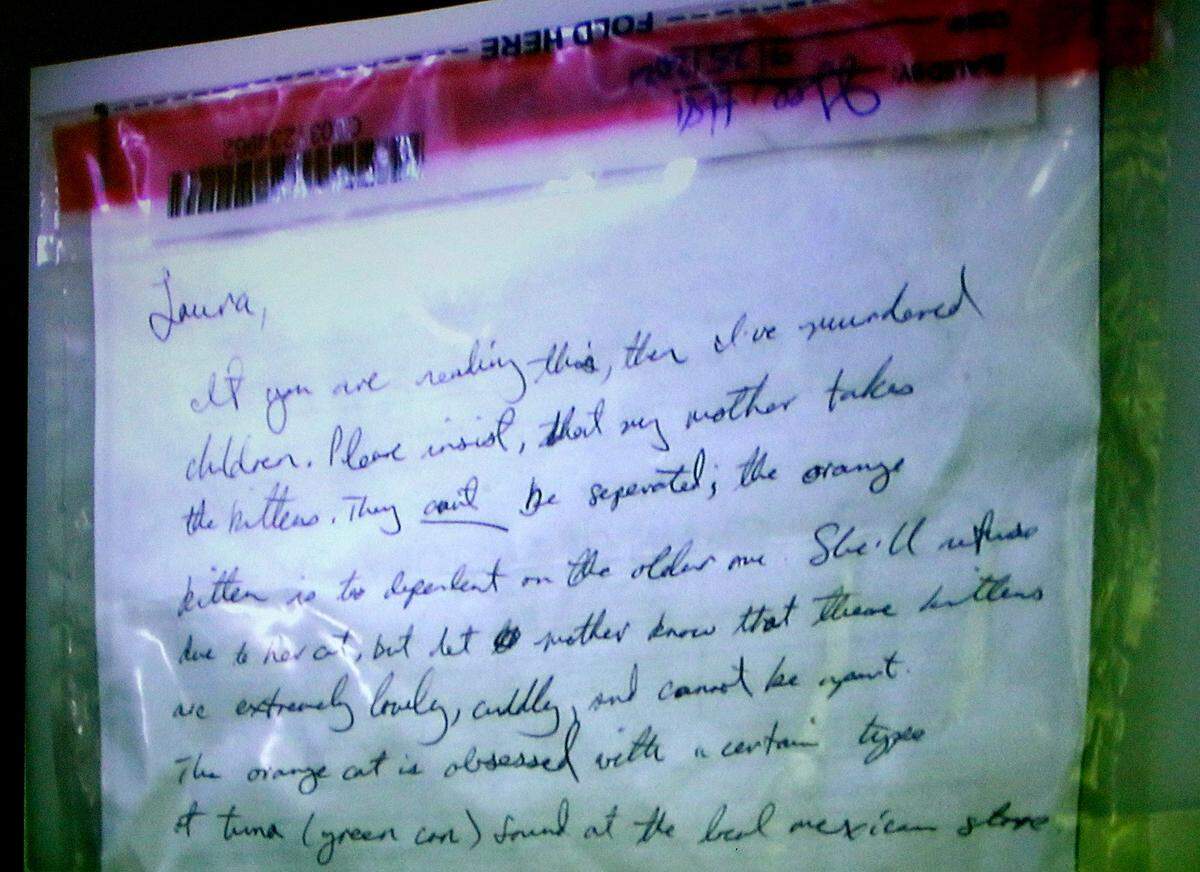 FOLD HERE
SEALED BY:
C 03 234802
Laura,
If you are reading this, then I've murdered
children. Please insist, that my mother takes
the kittens. They can't be seperated; the orange
kitten is too dependent on the older one. She'll refuse
due to her cat, but let mother know that these kittens
are extremely lovely, cuddly, and cannot be apart.
The orange cat is obsessed with a certain types
of tuna (green can) found at the local mexican store.